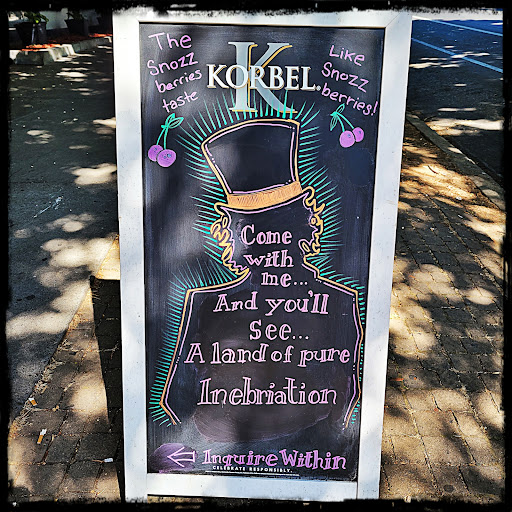 The
Snozz
berries
taste
K
KORBEL®
Like
Snozz
berries!
Come
with
me...
And you'll
see...
A land of pure
Inebriation
Inquire Within
CELEBRATE RESPONSIBLY.